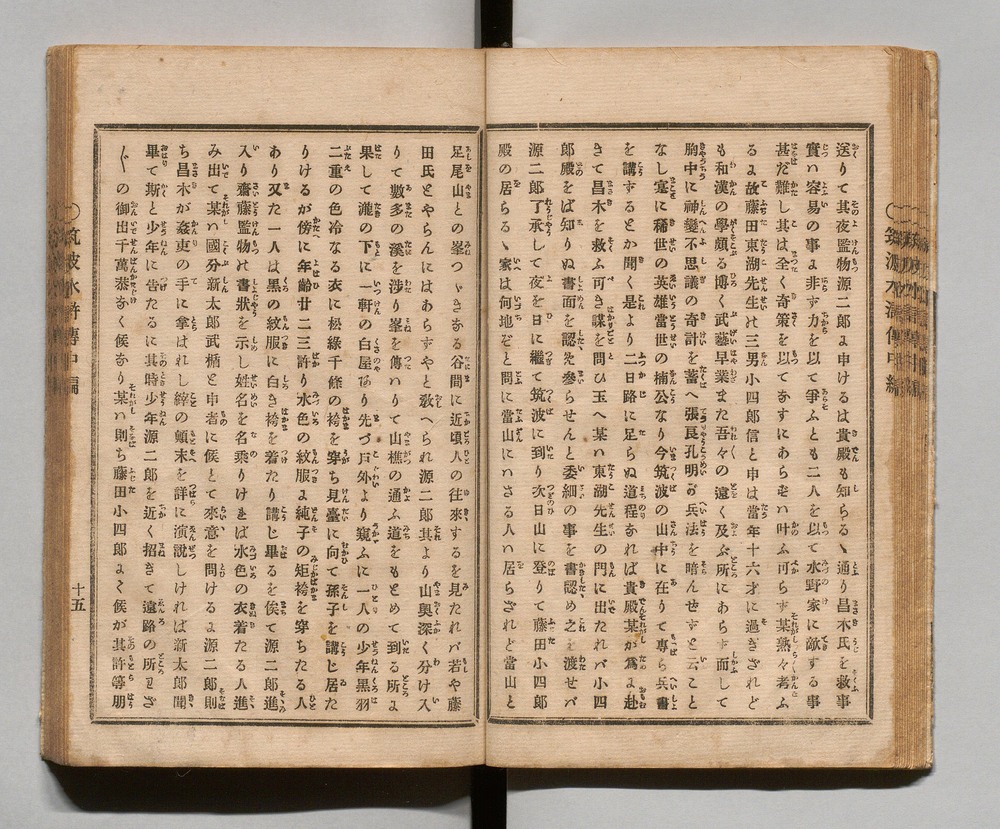 送りて其夜監物源二郎よ申けるは貴殿も知らるゝ通り昌木氏を救事
實ハ容易の事よ非す力を以て爭ふとも二人を以て水野家に敵する事
甚だ難し其は全く奇策を以てなすにあらざハ叶ふ可らす某熟々考ふ
るよ故藤田東湖先生は三男小四郎信と申は當年十六才に過ぎざれど
も和漢の學頗る博く武藝早業また吾々の遠く及ぶ所にあらず而して
胸中に神變不思議の奇計を蓄へ張良孔明が兵法を暗んせすと云こと
なし寔に稀世の英雄當世の楠公なり今筑波の山中に在りて專ら兵書
を講するとか聞く是より二日路に足らぬ道程なれば貴殿某が爲よ赴
きて昌木を救ふ可き謀を問ひ玉へ某ハ東湖先生の門に出たれバ小四
郎殿をば知りぬ書面を認め參らせんと委細の事を書認め之を渡せバ
源二郎了承して夜を日に繼て筑波に到り次日山に登りて藤田小四郎
殿の居らるゝ家は何地ぞと問に當山にハさる人ハ居らざれど當山と
足尾山との峯つゞきなる谷間に近頃人の往來するを見たれバ若や藤
田氏とやらんにはあらすやと敎へられ源二郎其より山奧深く分け入
りて數多の溪を渉り峯を傳ハりて山樵の通ふ道をもとめて到る所よ
果して瀧の下に一軒の白屋あり先づ戸外より窺ふに一人の少年黒羽
二重の色冷なる衣に松綠千條の袴を穿ち見臺に向て孫子を講じ居た
りけるが傍に年齡廿二三許り水色の紋服よ純子の矩袴を穿ちたる人
あり又た一人は黒の紋服に白き袴を着たり講じ畢るを俟て源二郎進
入り齋藤監物は書狀を示し姓名を名乘りければ水色の衣着たる人進
み出て某ハ國分新太郎武楯と申者に候とて來意を問けるよ源二郎則
ち昌木が姦吏の手に拿はれし縡の顚末を詳に演說しければ新太郎聞
畢て斯と少年に告たるに其時少年源二郎を近く招きて遠路の所わざ
〲の御出千萬忝なく候なり某ハ則ち藤田小四郎よて候が其許等朋
筑波水滸傳中編
十五